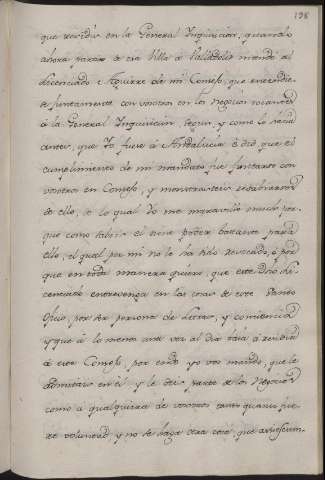 198
que residís en la General Inquisicion, quando
ahora partió de esa Villa à Valladolid mandé al
licenciado Aguirre de mi Consejo, que entendie-
se juntamente con vosotros en los Negocios tocantes
à la General Inquisicion segun, y como lo hacia
antes, que Yo fuese à Andalucia è diò que el
cumplimiento de mi mandato fué juntarse con
vosotros en Consejo, y monstrasteis
de ello, de lo qual Yo me maravillo mucho por-
que como sabeis el tiene poder bastante para
ello, el qual por mi no le ha sido revocado, è por
que en toda manera quiero, que este dicho li-
cenciado entrevenga en las cosas de este Santo
Oficio, por ser persona de Letras, y conciencia
y que à lo menos una vez al dia vaia à residir
à este Consejo, por ende yo vos mando, que le
admitais en él y le deis parte de los Negocios
como à qualquiera de vosotros tanto quanto fue-
re voluntad y no se haga otra cosa, que asi